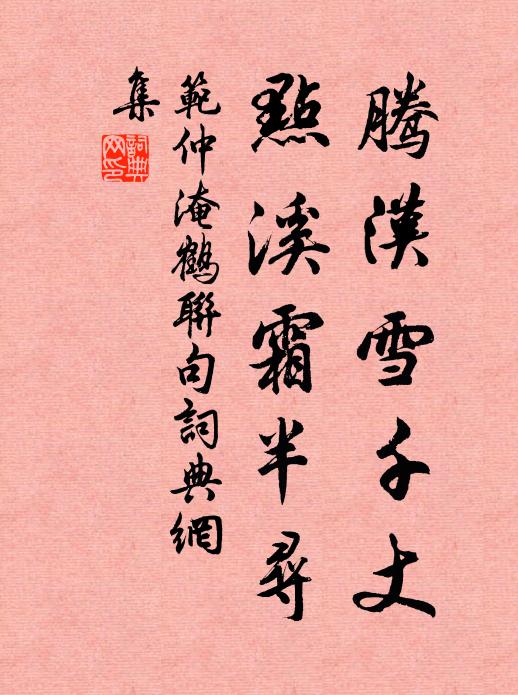 騰漢雪千丈
點溪霜半尋
範仲淹鶴聯句詞典網
集
詞典
網印